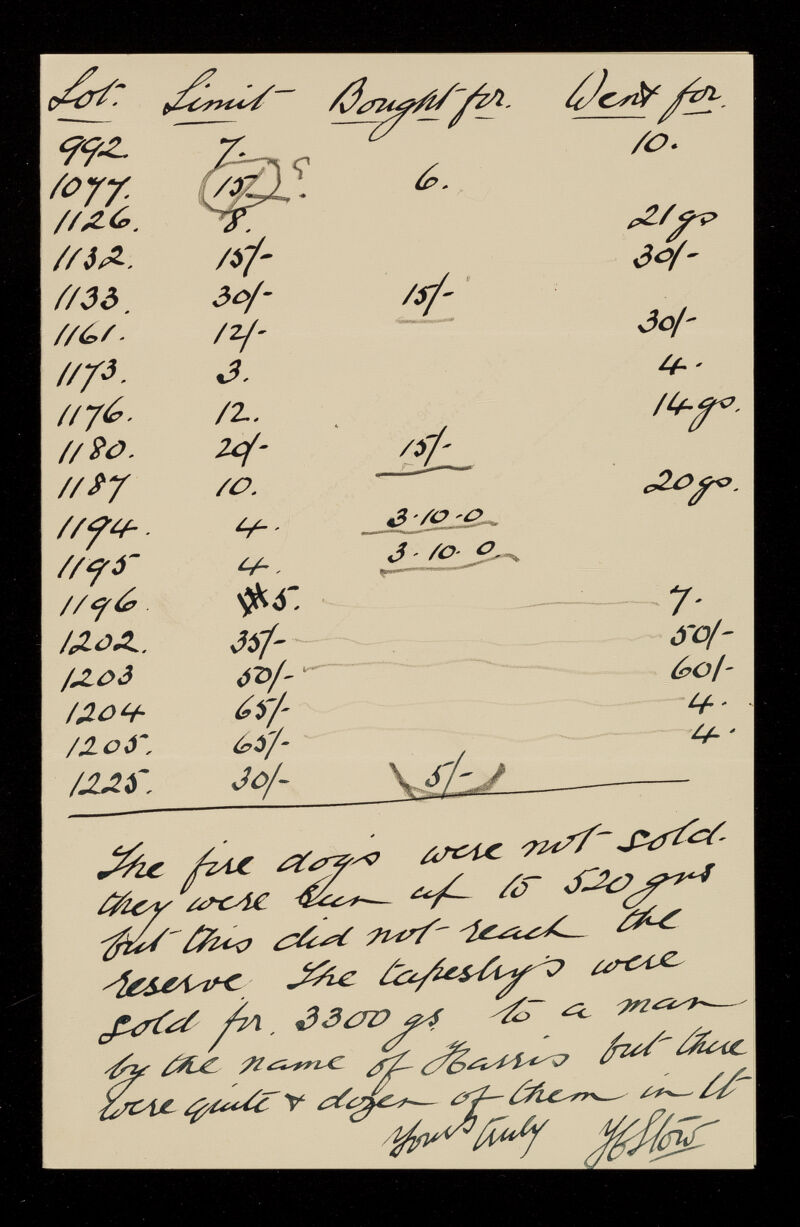 Lot. Limit Bought for. Went for.
992. 7. 10.
1077. 15/- ?. 6.
1126. 8. 21 gs
1132. 15/- 30/-
1133. 30/- 15/-
1161. 12/- 30/-
1173. 3. 4.
1176. 12. 14 gs.
1180. 20/- 15/-
1187 10. 20 gs.
1194. 4. 3.10.0
1195 4. 3.10.0.
1196. 5. 7.
1202. 35/- 50/-
1203 50/- 60/-
1204 65/- 4.
1205. 65/- 4.
1225. 30/- 5/-
The fire dogs were not sold.
they were run up to 520 gns
but this did not reach the
reserve The tapestry's were
sold for. 3300 gs. to a man
by the name of Harris but there
were quite a dozen of them in It
Yours truly H Stow